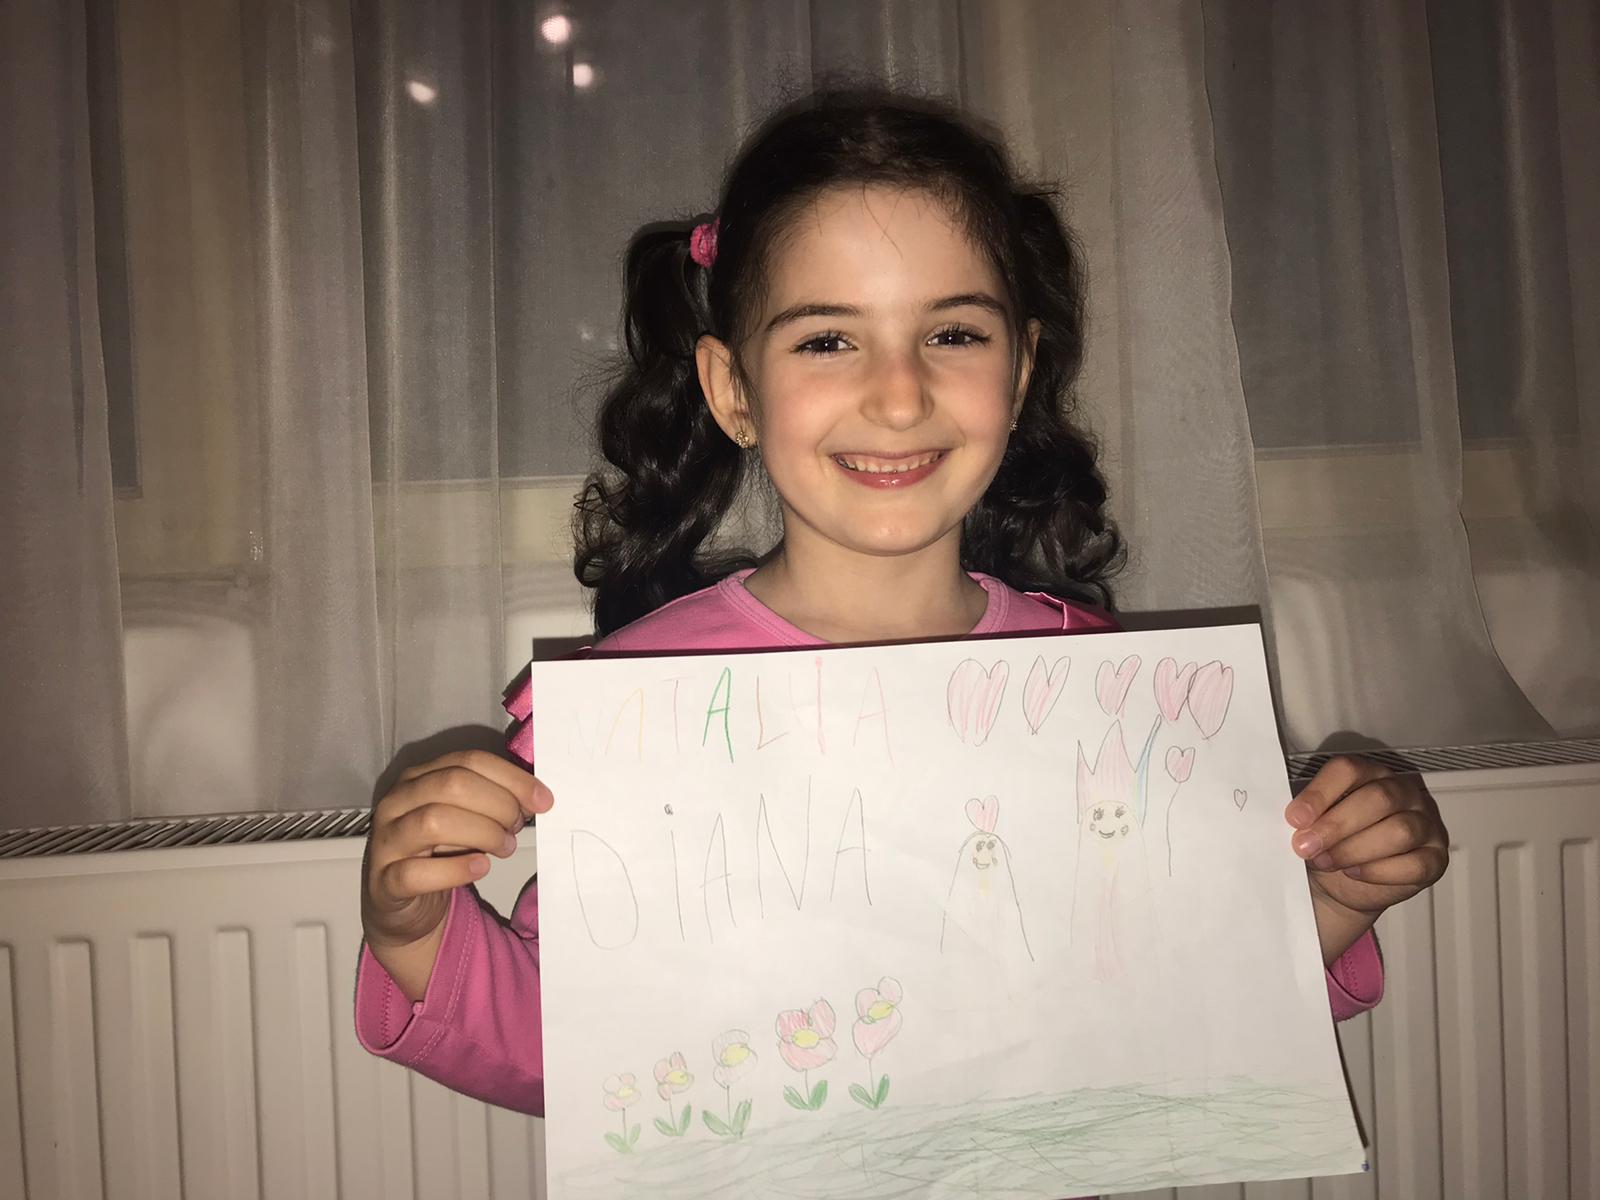 NATALiA
DiANA